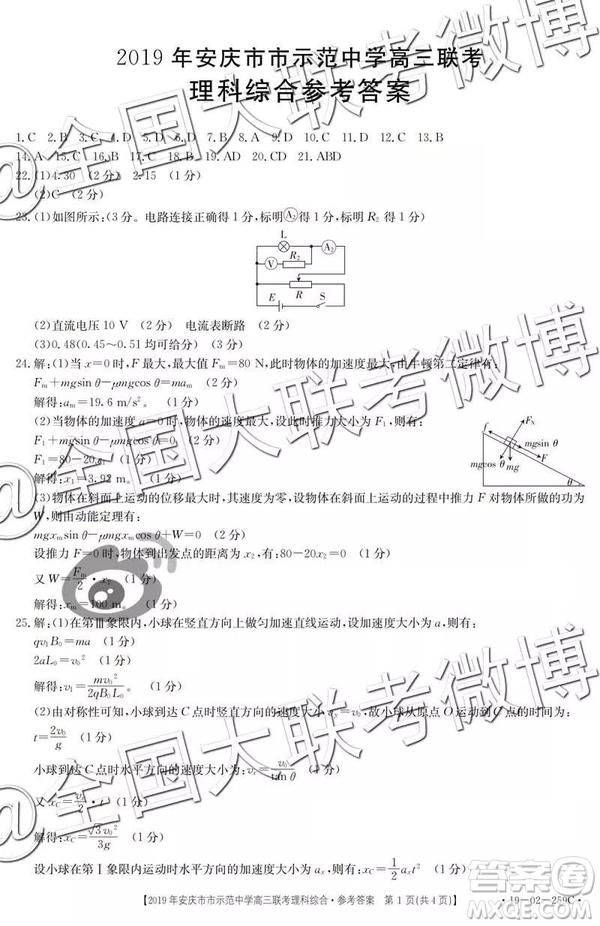 2019 年安庆市市示范中学高三联考
理科综合参考答案
1.C 2.B 3.C 4.D 5.D 6.D 7.B 8.C 9.D 10.A 11.C 12.C 13.B
14.A 15.C 16.B 17.C 18.BC 19.AD 20.CD 21.ABD
22.(1)4.30 (2分) 2.15 (1分)
(2)C (2分)
23.(1)如图所示:(3分。电路连接正确得1分,标明A₂得1分,标明 R₂ 得1分)
L
A₂
R₂
R
E S
(2)直流电压 10 V (2分) 电流表断路 (2分)
(3)0.48(0.45~0.51 均可给分) (2分)
24.解:(1)当 x=0 时,F 最大,最大值 Fₘ=80 N,此时物体的加速度最大,由牛顿第二定律有:
Fₘ+mgsin θ-μmgcos θ=maₘ (2分)
解得:aₘ=19.6 m/s²。 (1分)
(2)当物体的加速度 a=0 时,物体的速度最大,设此时推力大小为 F₁,则有:
F₁+mgsin θ=μmgcos θ (2分)
F₁=80-20x₁ (1分)
解得:x₁=3.92 m。 (1分)
f
F_N
mgsin θ
mgcos θ
mg
θ
(3)物体在斜面上运动的位移最大时,其速度为零,设物体在斜面上运动的过程中推力 F 对物体所做的功为
W,则由动能定理有:
mgxₘsin θ-μmgxₘcos θ+W=0 (2分)
设推力 F=0 时,物体到出发点的距离为 x₂,有:80-20x₂=0 (1分)
又 W=Fₘ/2·x₂ (1分)
解得:xₘ=100 m。 (1分)
25.解:(1)在第Ⅲ象限内,小球在竖直方向上做匀加速直线运动,设小球的加速度大小为 a,则有:
qv₁B₀=ma (1分)
2aL₀=v₀² (1分)
解得:v₁=mv₀²/2qB₀L₀。 (1分)
(2)由对称性可知,小球到达 C 点时竖直方向的速度大小 v_y=v₀,故小球从原点 O 运动到 C 点的时间为:
t=2v₀/g (1分)
小球到达 C 点时水平方向的速度大小为:vₓ=v₀/tan θ (1分)
又 x_C=vₓ/2·t (1分)
解得:x_C=√3v₀²/3g (1分)
设小球在第Ⅰ象限内运动时水平方向的加速度大小为 aₓ,则有:x_C=1/2aₓt² (1分)
【2019 年安庆市市示范中学高三联考理科综合·参考答案 第 1 页(共 4 页)】
·19-02-259C·
@全国大联考微博
@全国大联考微博
@全国大联考微博